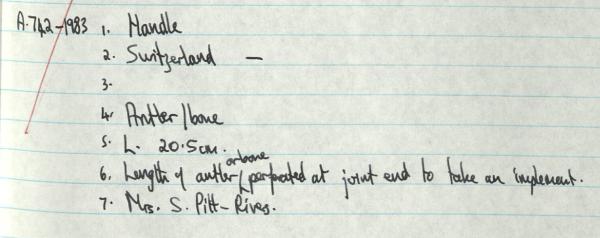 A.742-1983 1. Handle
2. Switzerland —
3.
4. Antler/bone
5. L. 20.5cm.
6. Length of antler/or bone perforated at joint end to take an implement.
7. Mrs. S. Pitt-Rivers.